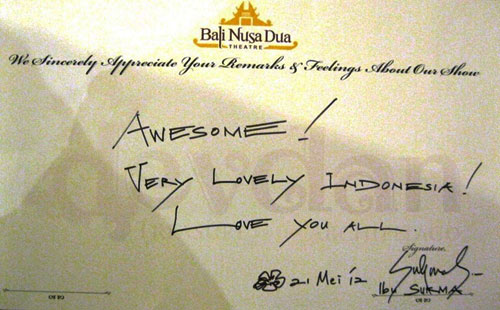 Bali Nusa Dua
THEATRE
We Sincerely Appreciate Your Remarks & Feelings About Our Show
AWESOME!
VERY LOVELY INDONESIA!
LOVE YOU ALL.
devdan
Signature,
21 Mei '12
Ibu SUKMA